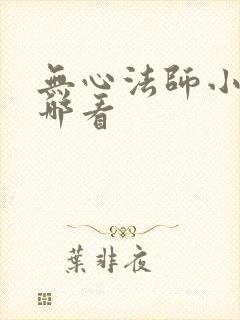 無心法師小
哪看
葉非夜